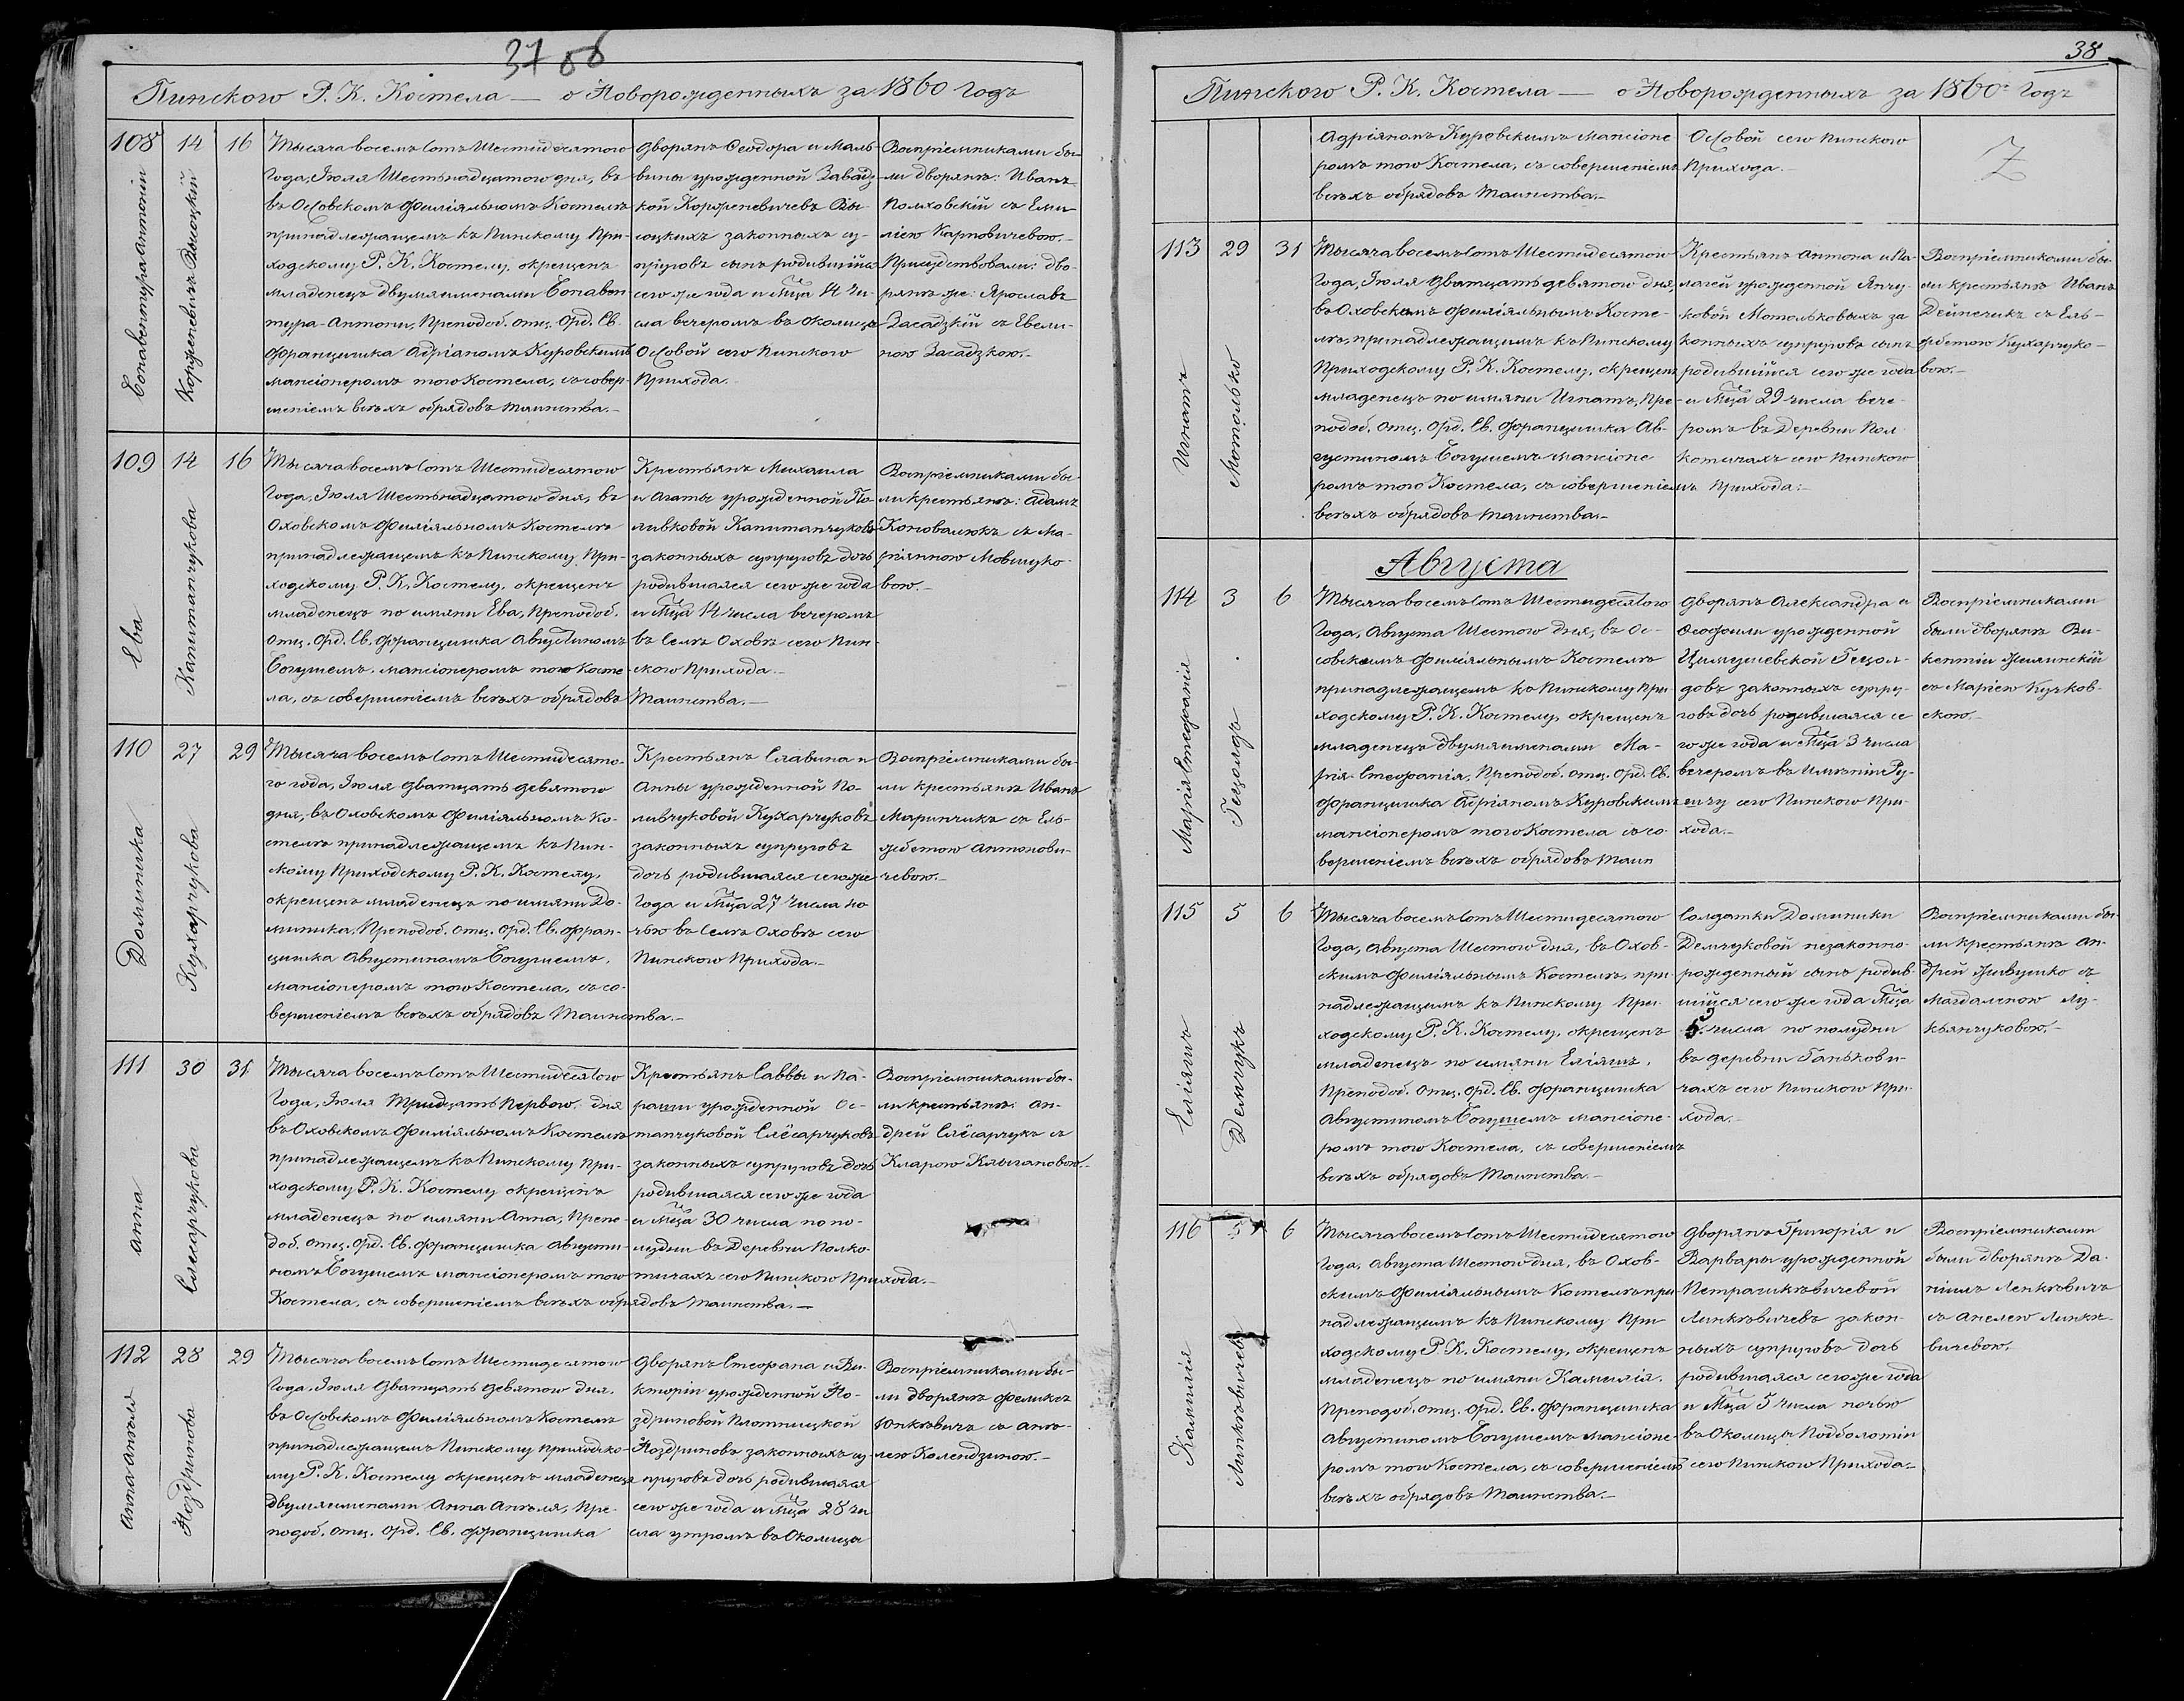 37
Пинского Р. К. Костела — о Новорожденныхъ за 1860 годъ
108
14
16
Бонавентура Антоній
Корженевичъ-Высоцкій
Тысяча восемъ сотъ Шестидесятого
Года, Іюля Шестьнадцатого дня, въ
въ Осовскомъ Филіяльномъ Костелѣ
принадлежащемъ къ Пинскому При-
ходскому Р. К. Костелу, окрещенъ
младенецъ двумя именами Бонавен
тура-Антони, Преподоб. отц. Орд. Св.
Францишка Адріаномъ Куровскимъ
мансіонеромъ того Костела, съ совер-
шеніемъ всѣхъ обрядовъ таинства.-
Дворянъ Ѳеодора и Маль-
вины урожденной Завадз-
кой Корженевичевъ Вы-
соцкихъ законныхъ су-
пруговъ сынъ родившійся
сего же года и Мца 14 чи-
сла вечеромъ въ околицѣ
Осовой сего Пинского
Прихода.
Воспріемниками бы-
ли дворянъ: Иванъ
Поляховскій съ Еми
ліею Карповичевою.-
Присудствовали: дво-
рянъ же: Ярославъ
Засадзкій съ Евели-
ною Засадзкою.-
109
14
16
Ева
Капитанчукова
Тысяча восемъ сотъ Шестидесятого
Года, Іюля Шестьнадцатого дня, въ
Оховскомъ Филіяльномъ Костелѣ
принадлежащемъ къ Пинскому При-
ходскому Р. К. Костелу, окрещенъ
младенецъ по имяни Ева, Преподоб.
отц. Орд. Св. Францишка Августиномъ
Богушемъ, мансіонеромъ того Косте
ла, съ совершеніемъ всѣхъ обрядовъ Таинства.—
Крестьянъ Михаила
и Агаты урожденной По-
ливковой Капитанчуковъ
законныхъ супруговъ дочь
родившаяся сего же года
и Мца 14 числа вечеромъ
въ Селѣ Оховѣ сего Пин-
ского Прихода.-
Воспріемниками бы-
ли крестьянъ: Адамъ
Коновалюкъ съ Ма-
ріянною Мовшуко-
вою.-
110
27
29
Доминика
Кухарчукова
Тысяча восемъ сотъ Шестидесято-
го года, Іюля дватцать девятого
дня, въ Оховскомъ Филіяльномъ Ко-
стелѣ принадлежащемъ къ Пин-
скому Приходскому Р. К. Костелу,
окрещенъ младенецъ по имяни До-
миника, Преподоб. отц. Орд. Св. Фран-
цишка Августиномъ Богушемъ,
мансіонеромъ того Костела, съ со-
вершеніемъ всѣхъ обрядовъ Таинства.-
Крестьянъ Славина и
Анны урожденной По-
ливчуковой Кухарчуковъ
законныхъ супруговъ
дочь родившаяся сего же
Года и Мца 27 числа но
чью въ Селѣ Оховѣ сего
Пинского Прихода.-
Воспріемниками бы-
ли крестьянъ Иванъ
Маринчикъ съ Ель-
жбетою Антонови-
чевою.-
111
30
31
Анна
Слесарчукова
Тысяча восемъ сотъ Шестидесятого
Года, Іюля Тридцать Первого дня
въ Оховскомъ Филіяльномъ Костелѣ
принадлежащемъ къ Пинскому При-
ходскому Р. К. Костелу окрещенъ
младенецъ по имяни Анна, Препо-
доб. отц. Орд. Св. Францишка Августи-
номъ Богушемъ мансіонеромъ того
Костела, съ совершеніемъ всѣхъ обрядовъ таинства.—
Крестьянъ Саввы и Па-
раши урожденной Ос-
танчуковой Слёсарчуковъ
законныхъ супруговъ дочь
родившаяся сего же года
и Мца 30 числа по по-
лудни въ Деревни Полко-
тичахъ сего Пинского Прихода.-
Воспріемниками бы-
ли крестьянъ: Ан-
дрей Слёсарчукъ съ
Кларою Клыгановою.-
112
28
29
Анна Анѣля
Ноздринова
Тысяча восемъ сотъ Шестидесятого
Года, Іюля Дватцать девятого дня,
въ Осовскомъ Филіяльномъ Костелѣ
принадлежащемъ Пинскому приходско-
му Р. К. Костелу окрещенъ младенецъ
двумя именами Анна Анѣля, Пре-
подоб. отц. Орд. Св. Францишка
Дворянъ Стефана и Ви-
кторіи урожденной Но-
здриновой Плотницкой
Ноздриновъ законныхъ су-
пруговъ дочь родившаяся
сего же года и Мца 28 чи
сла утромъ въ Околицы
Воспріемниками бы-
ли дворянъ Феликсъ
Юнкѣвичъ съ Анѣ-
лею Колендзиною.-
38
Пинского Р. К. Костела — о Новорожденныхъ за 1860. Годъ
Адріяномъ Куровскимъ мансіоне
ромъ того Костела, съ совершеніемъ
всѣхъ обрядовъ Таинства.-
Осовой сего Пинского
Прихода.-
Z
113
29
31
Игнатъ
Мотолько
Тысяча восемъ сотъ Шестидесятого
Года, Іюля Двадцать девятого дня,
въ Оховскимъ Филіяльнымъ Косте-
лѣ, принадлежащимъ къ Пинскому
Приходскому Р. К. Костелу, окрещенъ
младенецъ по имяни Игнатъ, Пре-
подоб. отц. Орд. Св. Францишка Ав-
густиномъ Богушемъ мансіоне
ромъ того Костела, съ совершеніемъ
всѣхъ обрядовъ Таинства.-
Крестьянъ Антона и Па-
лагеи урожденной Янчу-
ковой Мотольковыхъ за
конныхъ супруговъ сынъ
родившійся сего же года
и Мца 29 числа вече-
ромъ въ Деревни Пол
котичахъ сего Пинского
Прихода.-
Воспріемниками бы-
ли крестьянъ Иванъ
Дейнечикъ съ Ель-
жбетою Кухарчуко-
вою.-
Августа
114
3
6
Марія Стефанія
Гецолдъ
Тысяча восемъ сотъ Шестидесятого
Года, Августа Шестого дня, въ Ос-
совскимъ Филіяльнымъ Костелѣ
принадлежащемъ къ Пинскому При
ходскому Р. К. Костелу, окрещенъ
младенецъ двумя именами Ма-
рія-Стефанія, Преподоб. отц. Орд. Св.
Францишка Адріяномъ Куровскимъ
мансіонеромъ того Костела съ со-
вершеніемъ всѣхъ обрядовъ Таин
Дворянъ Александра и
Ѳеофили урожденной
Цимушевской Гецол-
довъ законныхъ супру-
говъ дочь родившаяся се
го же года и Мца 3 числа
вечеромъ въ Имѣніи Ру-
сичу сего Пинского При
хода.-
Воспріемниками
были дворянъ Ви-
кентій Жилинскій
съ Маріею Кучков-
скою.-
115
5
6
Еліяшъ
Демчукъ
Тысяча восемъ сотъ Шестидесятого
Года, Августа Шестого дня, въ Охов-
скимъ Филіяльнымъ Костелѣ, при-
надлежащимъ къ Пинскому При-
ходскому Р. К. Костелу, окрещенъ
младенецъ по имяни Еліяшъ,
Преподоб. отц. Орд. Св. Францишка
Августиномъ Богушемъ мансіоне-
ромъ того Костела, съ совершеніемъ
всѣхъ обрядовъ Таинства.-
Солдатки Доминики
Демчуковой незаконно-
рожденный сынъ родив-
шійся сего же года Мца
5 числа по полудни
въ деревни Ганькови-
чахъ сего Пинского При-
хода.-
Воспріемниками бы-
ли крестьянъ Ан-
дрей Живушко съ
Магдаленою Лу-
кьянчуковою.-
116
5
6
Камилія
Линкѣвичева
Тысяча восемъ сотъ Шестидесятого
Года, Августа Шестого дня, въ Охов-
скимъ Филіяльнымъ Костелѣ при
надлежащимъ къ Пинскому При
ходскому Р. К. Костелу, окрещенъ
младенецъ по имяни Камилія,
Преподоб. отц. Орд. Св. Францишка
Августиномъ Богушемъ мансіоне-
ромъ того Костела, съ совершеніемъ
всѣхъ обрядовъ Таинства.-
Дворянъ Григорія и
Варвары урожденной
Петрашкѣвичевой
Линкѣвичевъ закон-
ныхъ супруговъ дочь
родившаяся сего же года
и Мца 5 числа ночью
въ Околицы Подболотіи
сего Пинского Прихода.-
Воспріемниками
были дворянъ Да-
ніилъ Ленкѣвичъ
съ Анелею Линкѣ-
вичевою.